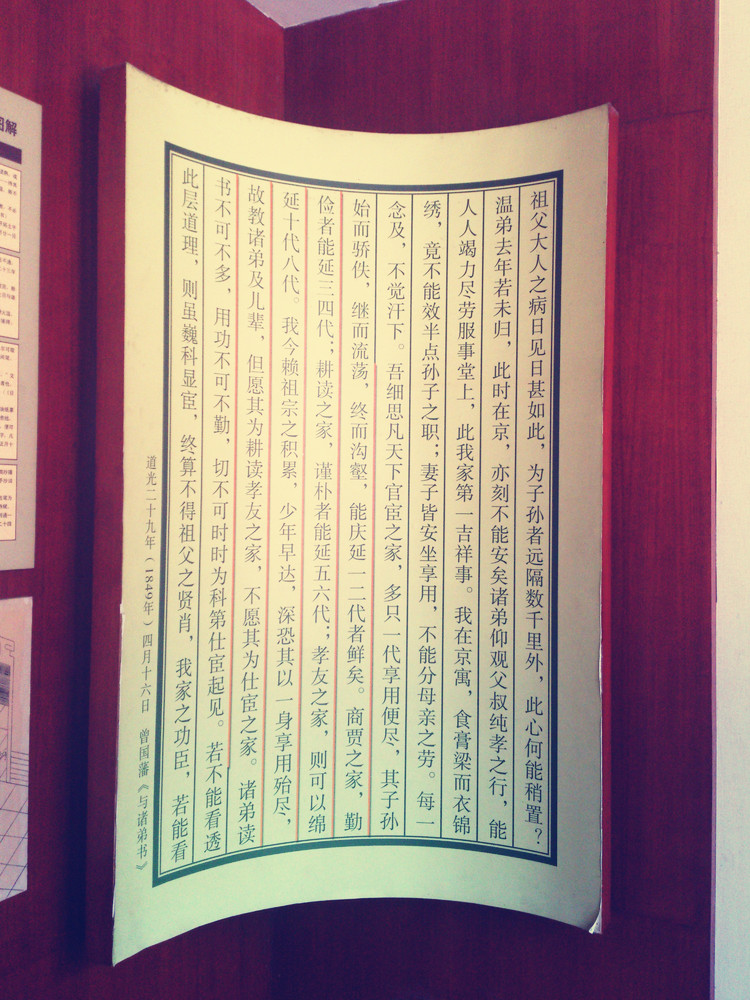 祖父大人之病日见日甚如此，为子孙者远隔数千里外，此心何能稍置？
温弟去年若未归，此时在京，亦刻不能安矣诸弟仰观父叔纯孝之行，能
人人竭力尽劳服事堂上，此我家第一吉祥事。我在京寓，食膏粱而衣锦
绣，竟不能效半点孙子之职；妻子皆安坐享用，不能分母亲之劳。每一
念及，不觉汗下。吾细思凡天下官宦之家，多只一代享用便尽，其子孙
始而骄佚，继而流荡，终而沟壑，能庆延一二代者鲜矣。商贾之家，勤
俭者能延三四代；耕读之家，谨朴者能延五六代；孝友之家，则可以绵
延十代八代。我今赖祖宗之积累，少年早达，深恐其以一身享用殆尽，
故教诸弟及儿辈，但愿其为耕读孝友之家，不愿其为仕宦之家。诸弟读
书不可不多，用功不可不勤，切不可时时为科第仕宦起见。若不能看透
此层道理，则虽巍科显宦，终算不得祖父之贤肖，我家之功臣，若能看
道光二十九年（1849年）四月十六日 曾国藩《与诸弟书》
图解